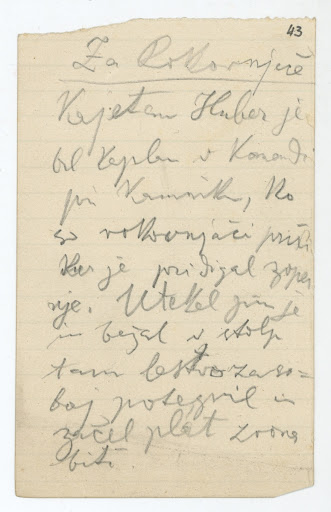 43
Za Rokovnjače
Kajetan Huber je
bil kaplan v
pri Kamniku, ko
so rokovnjači prišli
ker je pridigal zoper
nje. Utekel jim je
in bežal v stolp
tam lestvo za so=
boj potegnil in
začel plat zvona
biti